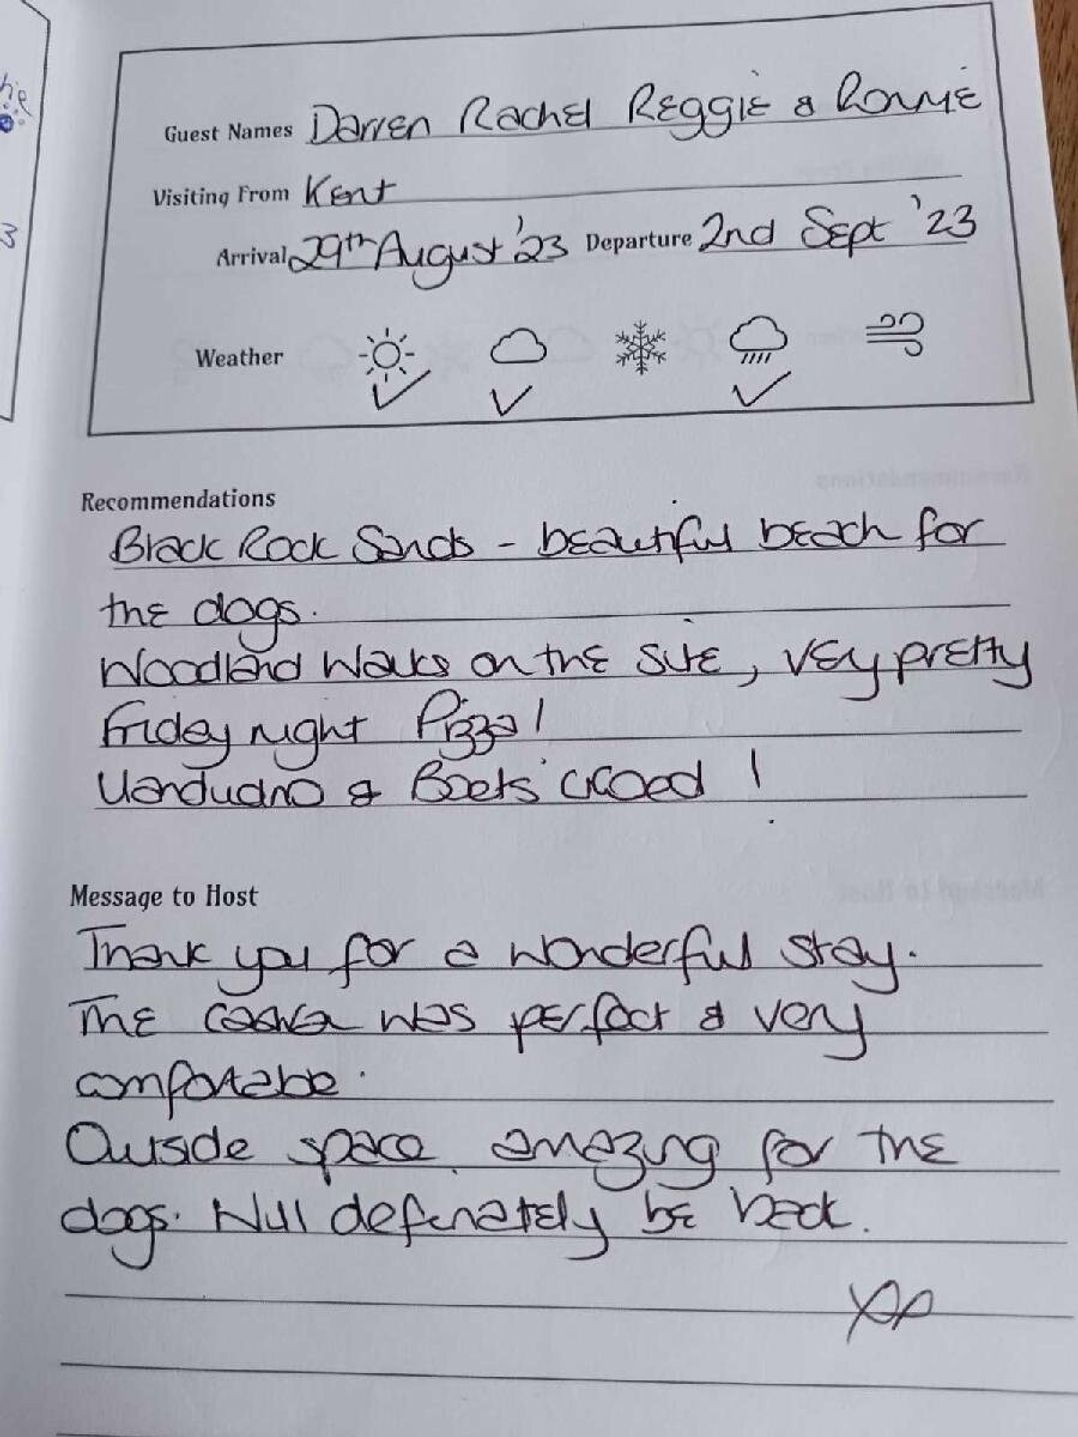 Guest Names Darren Rachel Reggie & Ronnie
Visiting From Kent
Arrival 29th August '23 Departure 2nd Sept '23
Weather
Recommendations
Black Rock Sands - beautiful beach for
the dogs.
Woodland Walks on the site, very pretty
Friday night Pizza!
Llandudno & Boets' coed !
Message to Host
Thank you for a wonderful stay.
The was perfect & very
comfortable.
Outside space amazing for the
dogs. Will definately be back.
xx
3